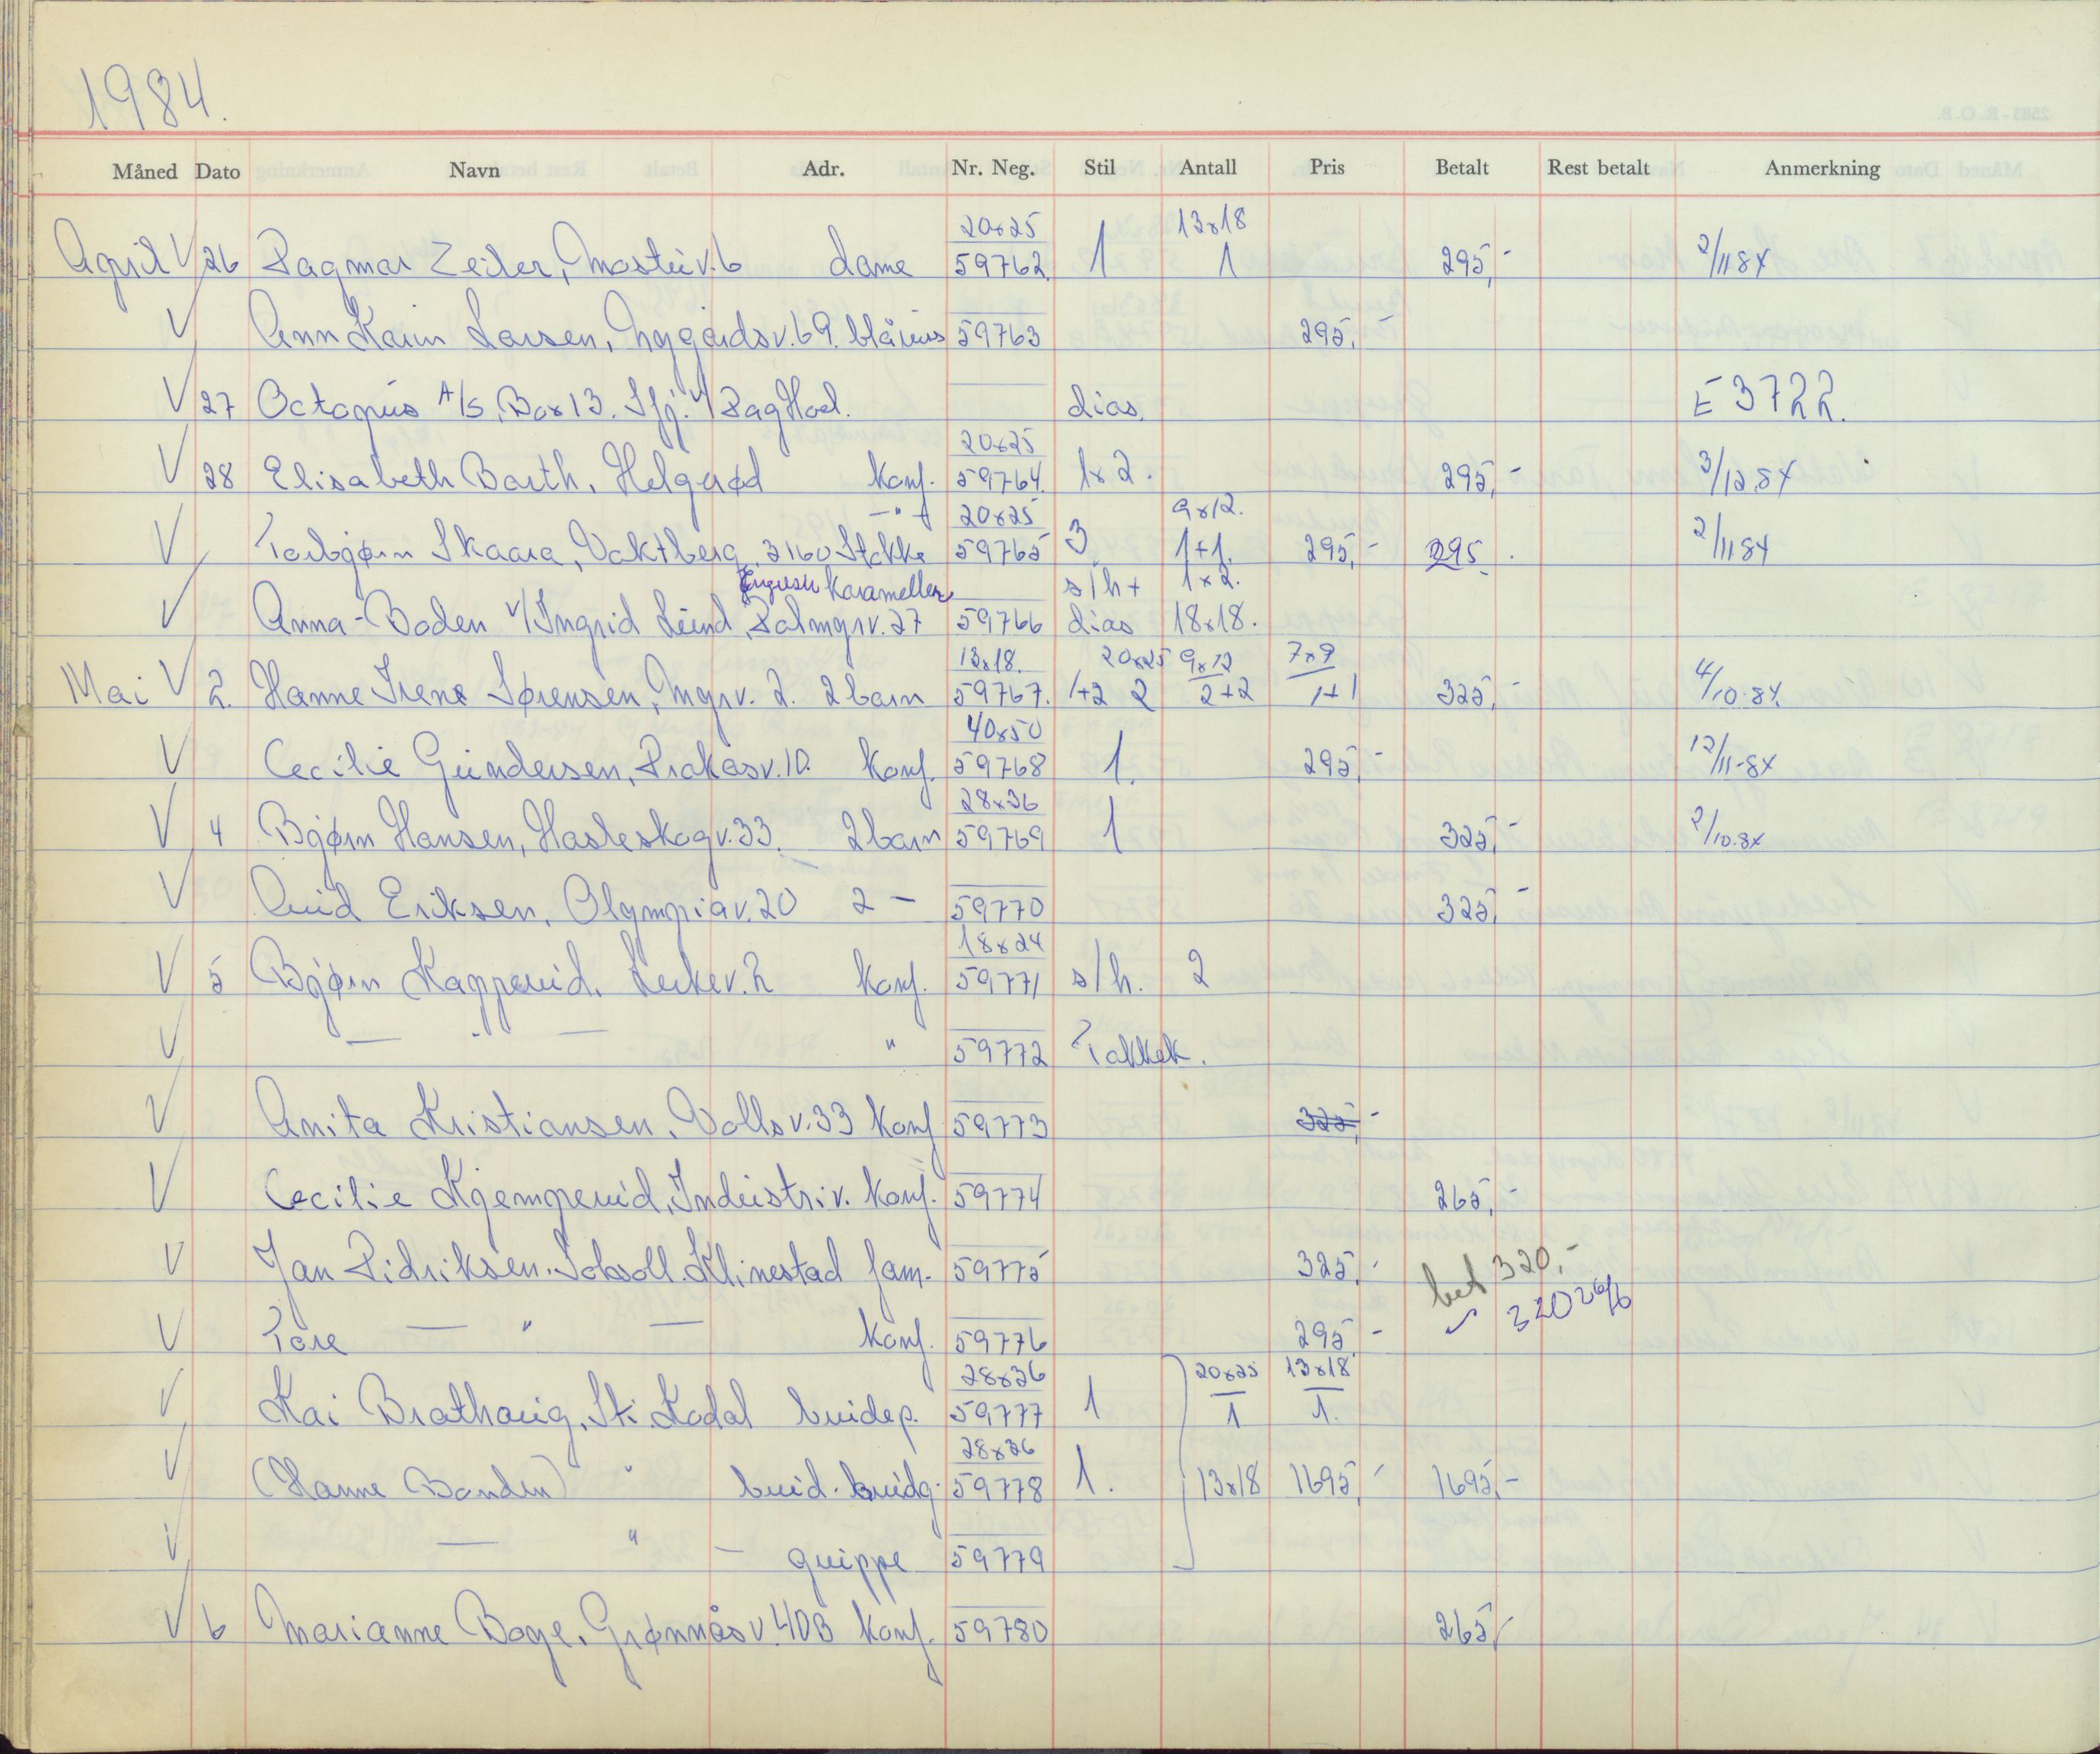 1984.
Måned Dato Navn Adr. Nr. Neg. Stil Antall Pris Betalt Rest betalt Anmerkning
20x25 13x18
April V 26 Dagmar Zeiler, v. 6 dame 59762. 1 1 295,- 2/11 84
V Ann Karin Larsen, Nygårdsv. 69. blåruss 59763 295,-
V 27 Octopus A/S, Box 13. Sfj. v/ Dag Hoel. dias. E 3722.
20x25
V 28 Elisabeth Barth, Helgerød konf. 59764. 1x2. 295,- 3/12.84
-"- 20x25 9x12.
V Torbjørn Skaara, Vaktberg, 3160 Stokke 59765 3 1+1. 295,- 295. 2/11 84
Engelsk Karameller s/h + 1x2.
V Anna-Boden v/ Ingrid Lund, Palmgrv. 27 59766 dias 18x18.
13x18. 20x25 9x12 7x9
Mai V 2. Hanne Irene Sørensen, Mgrv. 2. 2 barn 59767. 1+2 2 2+2 1+1 325,- 4/10.84.
40x50
V Cecilie Gundersen, v. 10. konf. 59768 1. 295,- 12/11-84
28x36
V 4 Bjørn Hansen, Hasleskogv. 33. 2 barn 59769 1 325,- 2/10.84
V Arvid Eriksen, Olympiav. 20 2 - 59770 325,-
18x24
V 5 Bjørn Kapperud. Lerkev. 2 konf. 59771 s/h. 2
V — " — " 59772 Takkek.
V Anita Kristiansen, Vollsv. 33 konf 59773 325,-
V Cecilie Kjemperud, Industriv. konf. 59774 265,-
V Jan Didriksen. Solvoll. Klinestad fam. 59775 325,- bet 320,-
V Tore — " — konf. 59776 295,- 320 26/6
28x36 20x25 13x18
V Kai Brathaug, St. Kodal brudep. 59777 1 1 1.
28x36
V (Hanne Bonden) " brud. brudg. 59778 1. 13x18 1695,- 1695,-
V — " — gruppe 59779
V 6 Marianne Boge, Grønnåsv. 40B konf. 59780 265,-